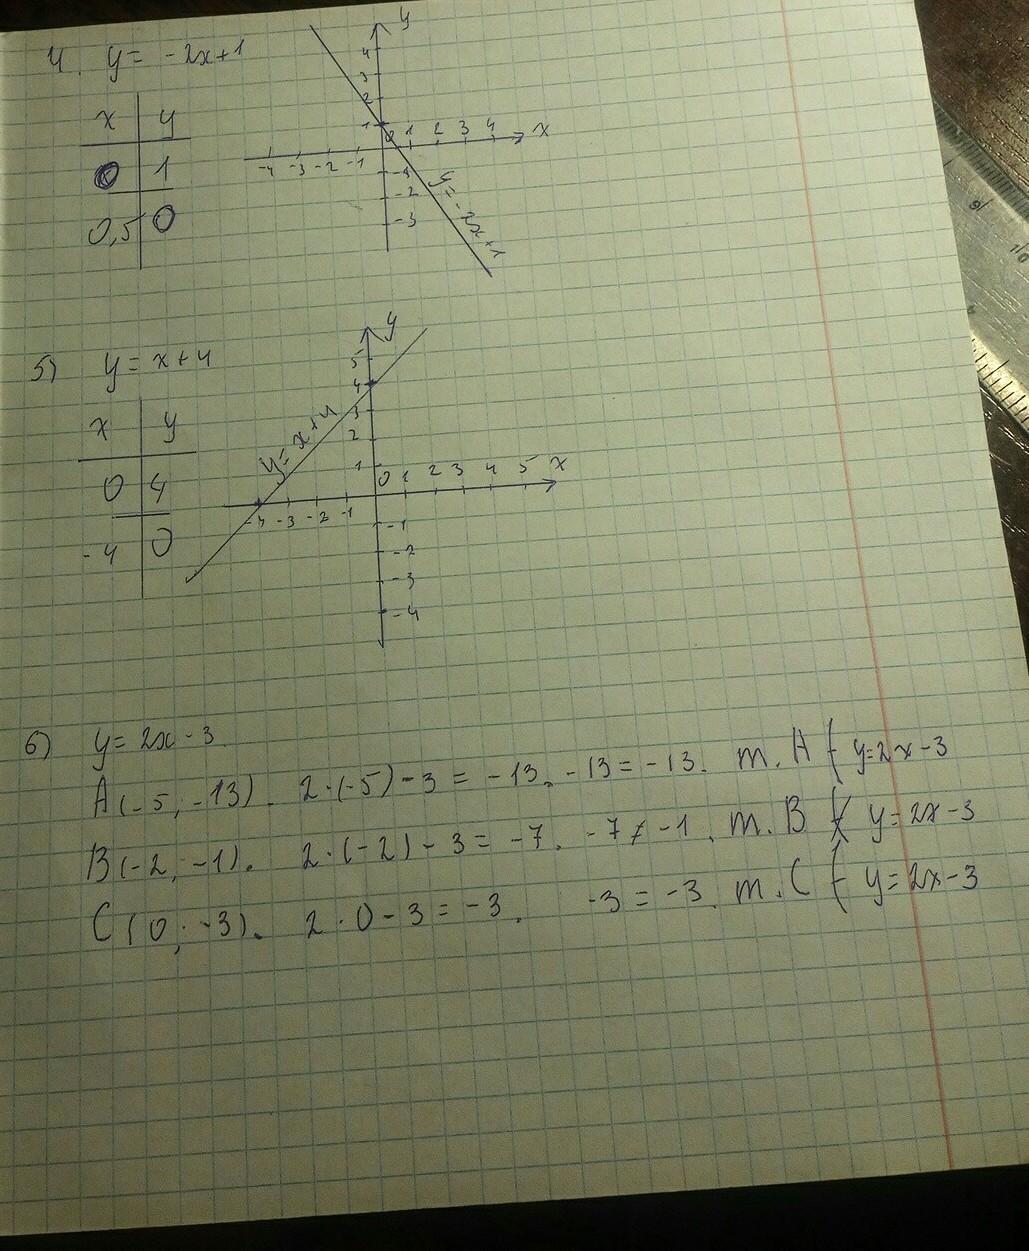 4. y = -2x+1
x y
0 1
0,5 0
y
4
3
2
1
0 1 2 3 4 x
-4 -3 -2 -1
-1
-2
-3
y=-2x+1
5) y = x+4
x y
0 4
-4 0
y
5
4
3
2
1
0 1 2 3 4 5 x
-4 -3 -2 -1
-1
-2
-3
-4
y=x+4
6) y = 2x - 3
A(-5; -13). 2·(-5)-3 = -13. -13 = -13. т. A ∈ y=2x-3
B(-2; -1). 2·(-2)-3 = -7. -7 ≠ -1. т. B ∉ y=2x-3
C(0; -3). 2·0-3 = -3. -3 = -3. т. C ∈ y=2x-3
9
10